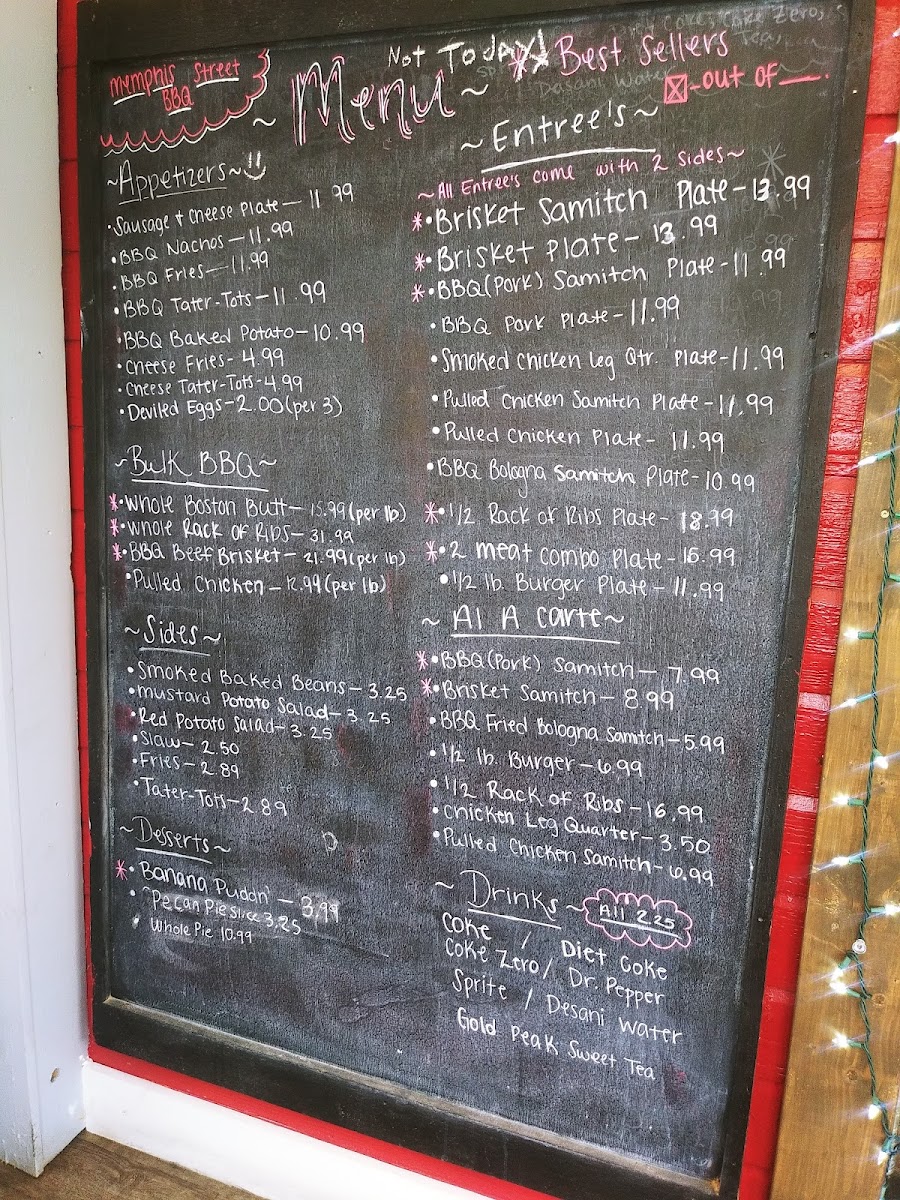 Memphis Street
BBQ
Not Today!
~ Menu ~
* Best Sellers
☒-out of __.
~Appetizers~
•Sausage & Cheese Plate — 11.99
•BBQ Nachos — 11.99
•BBQ Fries — 11.99
•BBQ Tater-Tots — 11.99
•BBQ Baked Potato — 10.99
•Cheese Fries - 4.99
•Cheese Tater-Tots - 4.99
•Deviled Eggs - 2.00 (per 3)
~Bulk BBQ~
*•Whole Boston Butt — 15.99 (per lb)
*•Whole Rack of Ribs — 31.99
*•BBQ Beef Brisket — 21.99 (per lb)
•Pulled Chicken — 12.99 (per lb)
~Sides~
•Smoked Baked Beans — 3.25
•Mustard Potato Salad — 3.25
•Red Potato Salad — 3.25
•Slaw — 2.50
•Fries — 2.89
•Tater-Tots — 2.89
~Desserts~
*•Banana Puddn' — 3.99
•Pecan Pie slice 3.25
•Whole Pie 10.99
~Entree's~
~All Entree's come with 2 sides~
*•Brisket Samitch Plate - 13.99
*•Brisket Plate - 13.99
*•BBQ (Pork) Samitch Plate - 11.99
•BBQ Pork Plate - 11.99
•Smoked Chicken Leg Qtr. Plate - 11.99
•Pulled Chicken Samitch Plate - 11.99
•Pulled Chicken Plate - 11.99
•BBQ Bologna Samitch Plate - 10.99
*•1/2 Rack of Ribs Plate - 18.99
*•2 meat combo Plate - 15.99
•1/2 lb. Burger Plate - 11.99
~ Al A Carte ~
*•BBQ (Pork) Samitch — 7.99
*•Brisket Samitch — 8.99
•BBQ Fried Bologna Samitch — 5.99
•1/2 lb. Burger — 6.99
•1/2 Rack of Ribs — 16.99
•Chicken Leg Quarter — 3.50
•Pulled Chicken Samitch - 6.99
~Drinks~ All 2.25
Coke / Diet Coke
Coke Zero / Dr. Pepper
Sprite / Desani Water
Gold Peak Sweet Tea